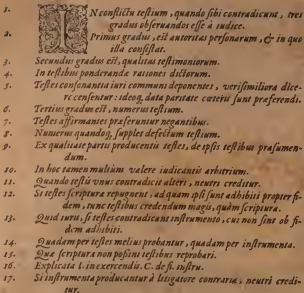 1. IN conflictu testium, quando sibi contradicunt, tres
gradus obseruandos esse à iudice.
2. Primus gradus, est autoritas personarum, & in quo
illa consistat.
3. Secundus gradus est, qualitas testimoniorum.
4. In testibus ponderanda rationes dictorum.
5. Testes consonantia iuri communi deponentes, verisimiliora dice-
re censentur: ideoq, data paritate cateris sunt praferendi.
6. Tertius gradus est, numerus testium.
7. Testes affirmantes praferuntur negantibus.
8. Numerus quandoq, supplet defectum testium.
9. Ex qualitate partis producentis testes, de ipsis testibus prasumen-
dum.
10. In hoc tamen multùm valere iudicantis arbitrium.
11. Quando testis vnus contradicit alteri, neutri creditur.
12. Si testes scriptura repugnent, ad quam ipsi sunt adhibiti propter fi-
dem, tunc testibus credendum magis, quàm scriptura.
13. Quid iuris, si testes contradicant instrumento, cui non sint ob fi-
dem adhibiti.
14. Quadam per testes melius probantur, quadam per instrumenta.
15. Qua scriptura non possint testibus reprobari.
16. Explicata l. in exercendis. C. de fi. instru.
17. Si instrumenta producantur à litigatore contraria, neutri credi-
tur.